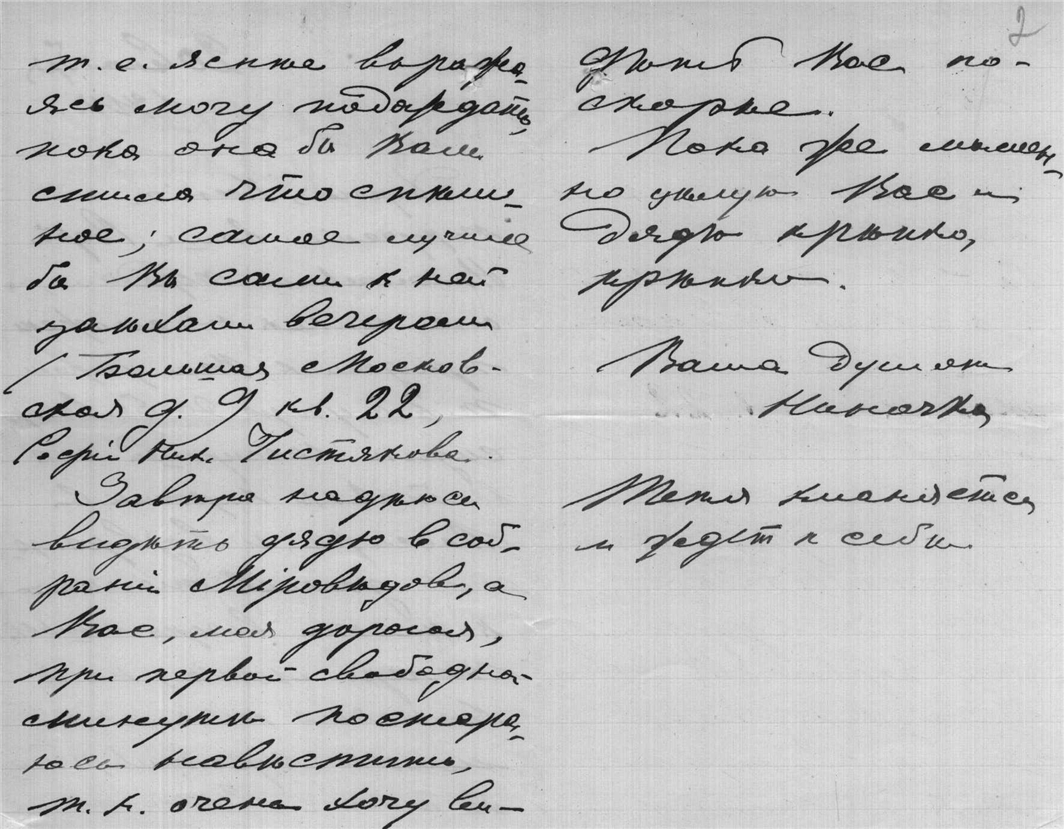 2
т. е. яснѣе выража-
ясь могу подождать,
пока она бы Вам
сшила что спѣш-
ное; самое лучше
бы Вы сами к ней
заѣхали вечером
(Большая Москов-
ская д. 9 кв. 22,
Ник. Чистякова.
Завтра надѣюсь
видѣть дядю в соб-
раніи Міровѣдов, а
Вас, моя дорогая,
при первой свободной
минутѣ постара-
юсь навѣстить,
т. к. очень хочу ви-
дѣть Вас по-
скорѣе.
Пока же мыслен-
но цѣлую Вас и
Дядю крѣпко,
крѣпко.
Ваша Душой
Ниночка
Женя кланяется
и ждет к себѣ